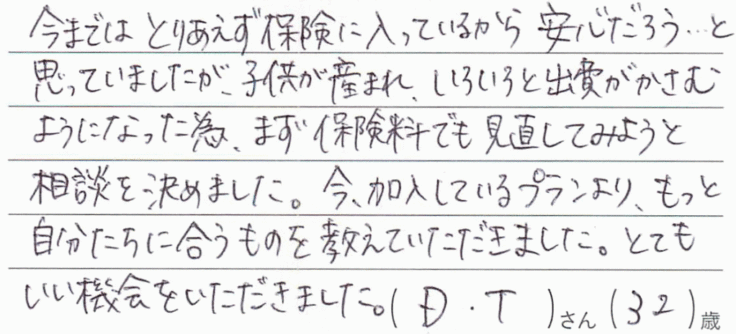 今まではとりあえず保険に入っているから安心だろう…と
思っていましたが、子供が産まれ、いろいろと出費がかさむ
ようになった為、まず保険料でも見直してみようと
相談を決めました。今、加入しているプランより、もっと
自分たちに合うものを教えていただきました。とても
いい機会をいただきました。(D・T)さん(32)歳